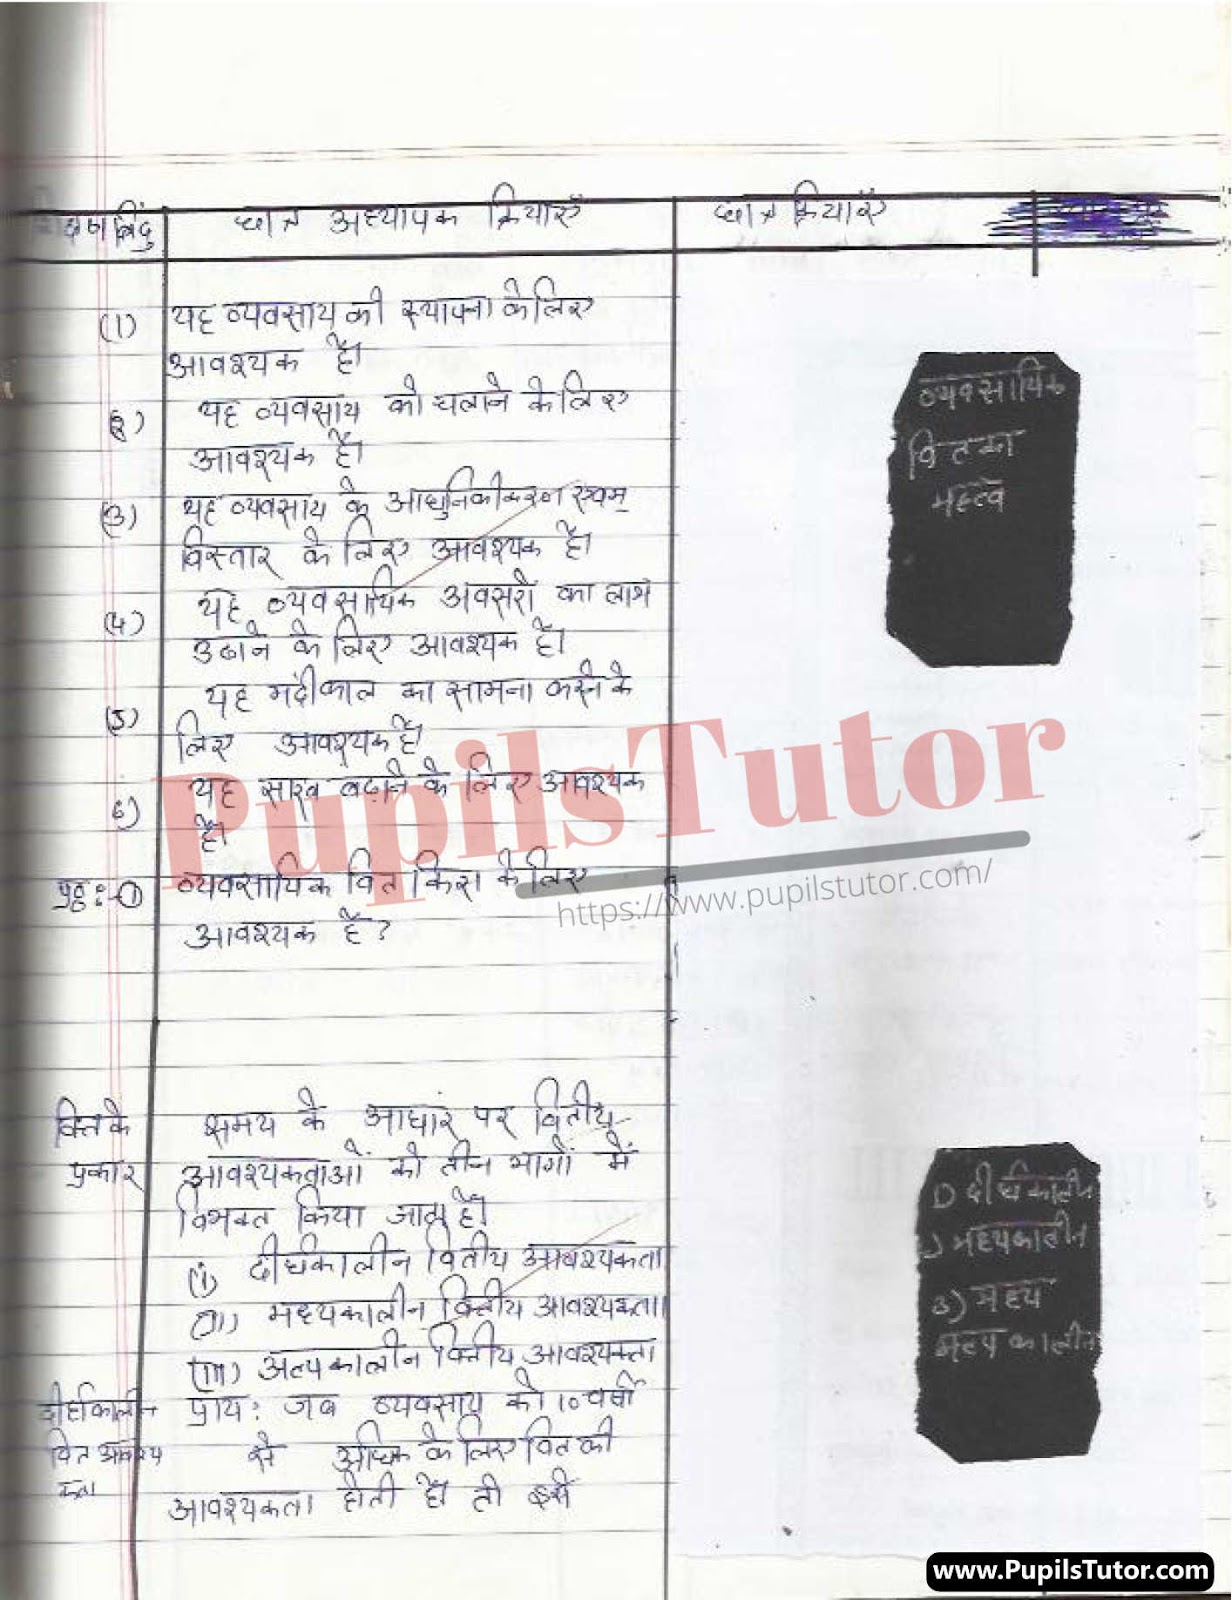 छात्र अध्यापक क्रियाएँ
छात्र क्रियाएँ
(1) यह व्यवसाय की स्थापना के लिए
आवश्यक है।
यह व्यवसाय को चलाने के लिए
आवश्यक है।
(3) यह व्यवसाय के आधुनिकीकरण एवम्
विस्तार के लिए आवश्यक है।
(4) यह व्यवसायिक अवसरों का लाभ
उठाने के लिए आवश्यक है।
(5) यह मंदीकाल का सामना करने के
लिए आवश्यक है।
6) यह साख बढ़ाने के लिए आवश्यक
है।
व्यवसायिक वित किस के लिए
आवश्यक है?
व्यवसायिक
वित का
महत्व
PupilsTutor
https://www.pupilstutor.com/
वित के प्रकार
समय के आधार पर वितीय
आवश्यकताओं को तीन भागों में
विभक्त किया जाता है।
(i) दीर्घकालीन वितीय आवश्यकता
(ii) मध्यकालीन वित्तीय आवश्यकता
(iii) अल्पकालीन वित्तीय आवश्यकता
दीर्घकालीन
वित आवश्य
कता
प्राय: जब व्यवसाय को 10 वर्षो
से अधिक के लिए वित की
आवश्यकता होती है। तो इसे
1) दीर्घकालीन
मध्यकालीन
3) मध्य
कालीन
www.PupilsTutor.com